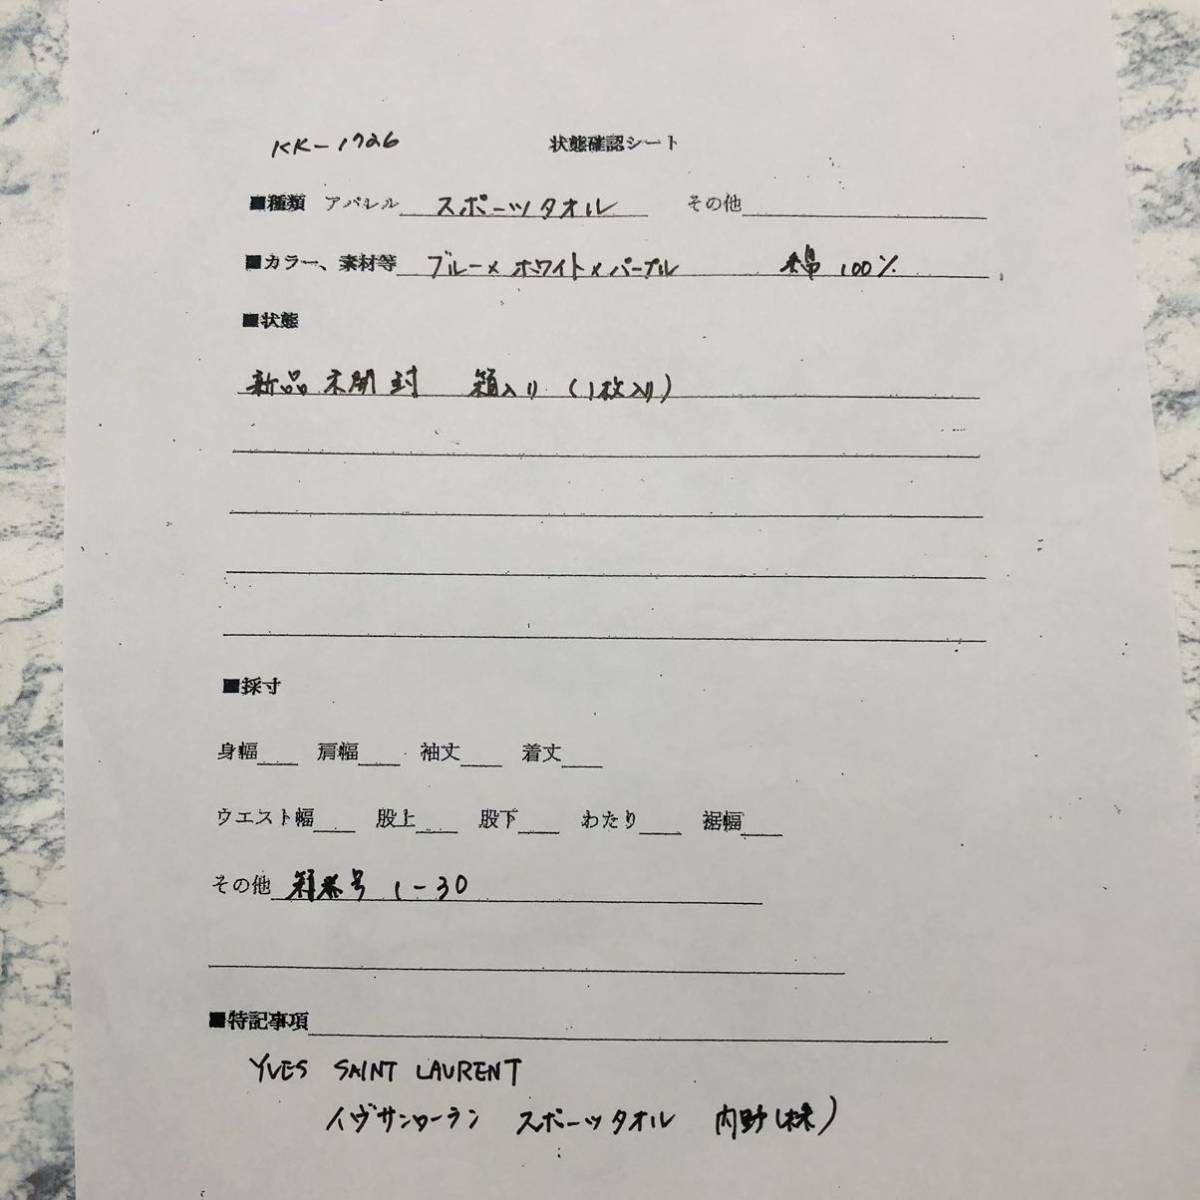 KK-1726 状態確認シート
■種類 アパレル スポーツタオル その他
■カラー、素材等 ブルー×ホワイト×パープル 綿 100%
■状態
新品未開封 箱入り (1枚入り)
■採寸
身幅 肩幅 袖丈 着丈
ウエスト幅 股上 股下 わたり 裾幅
その他 箱番号 1-30
■特記事項
YVES SAINT LAURENT
イヴサンローラン スポーツタオル 内野(株)